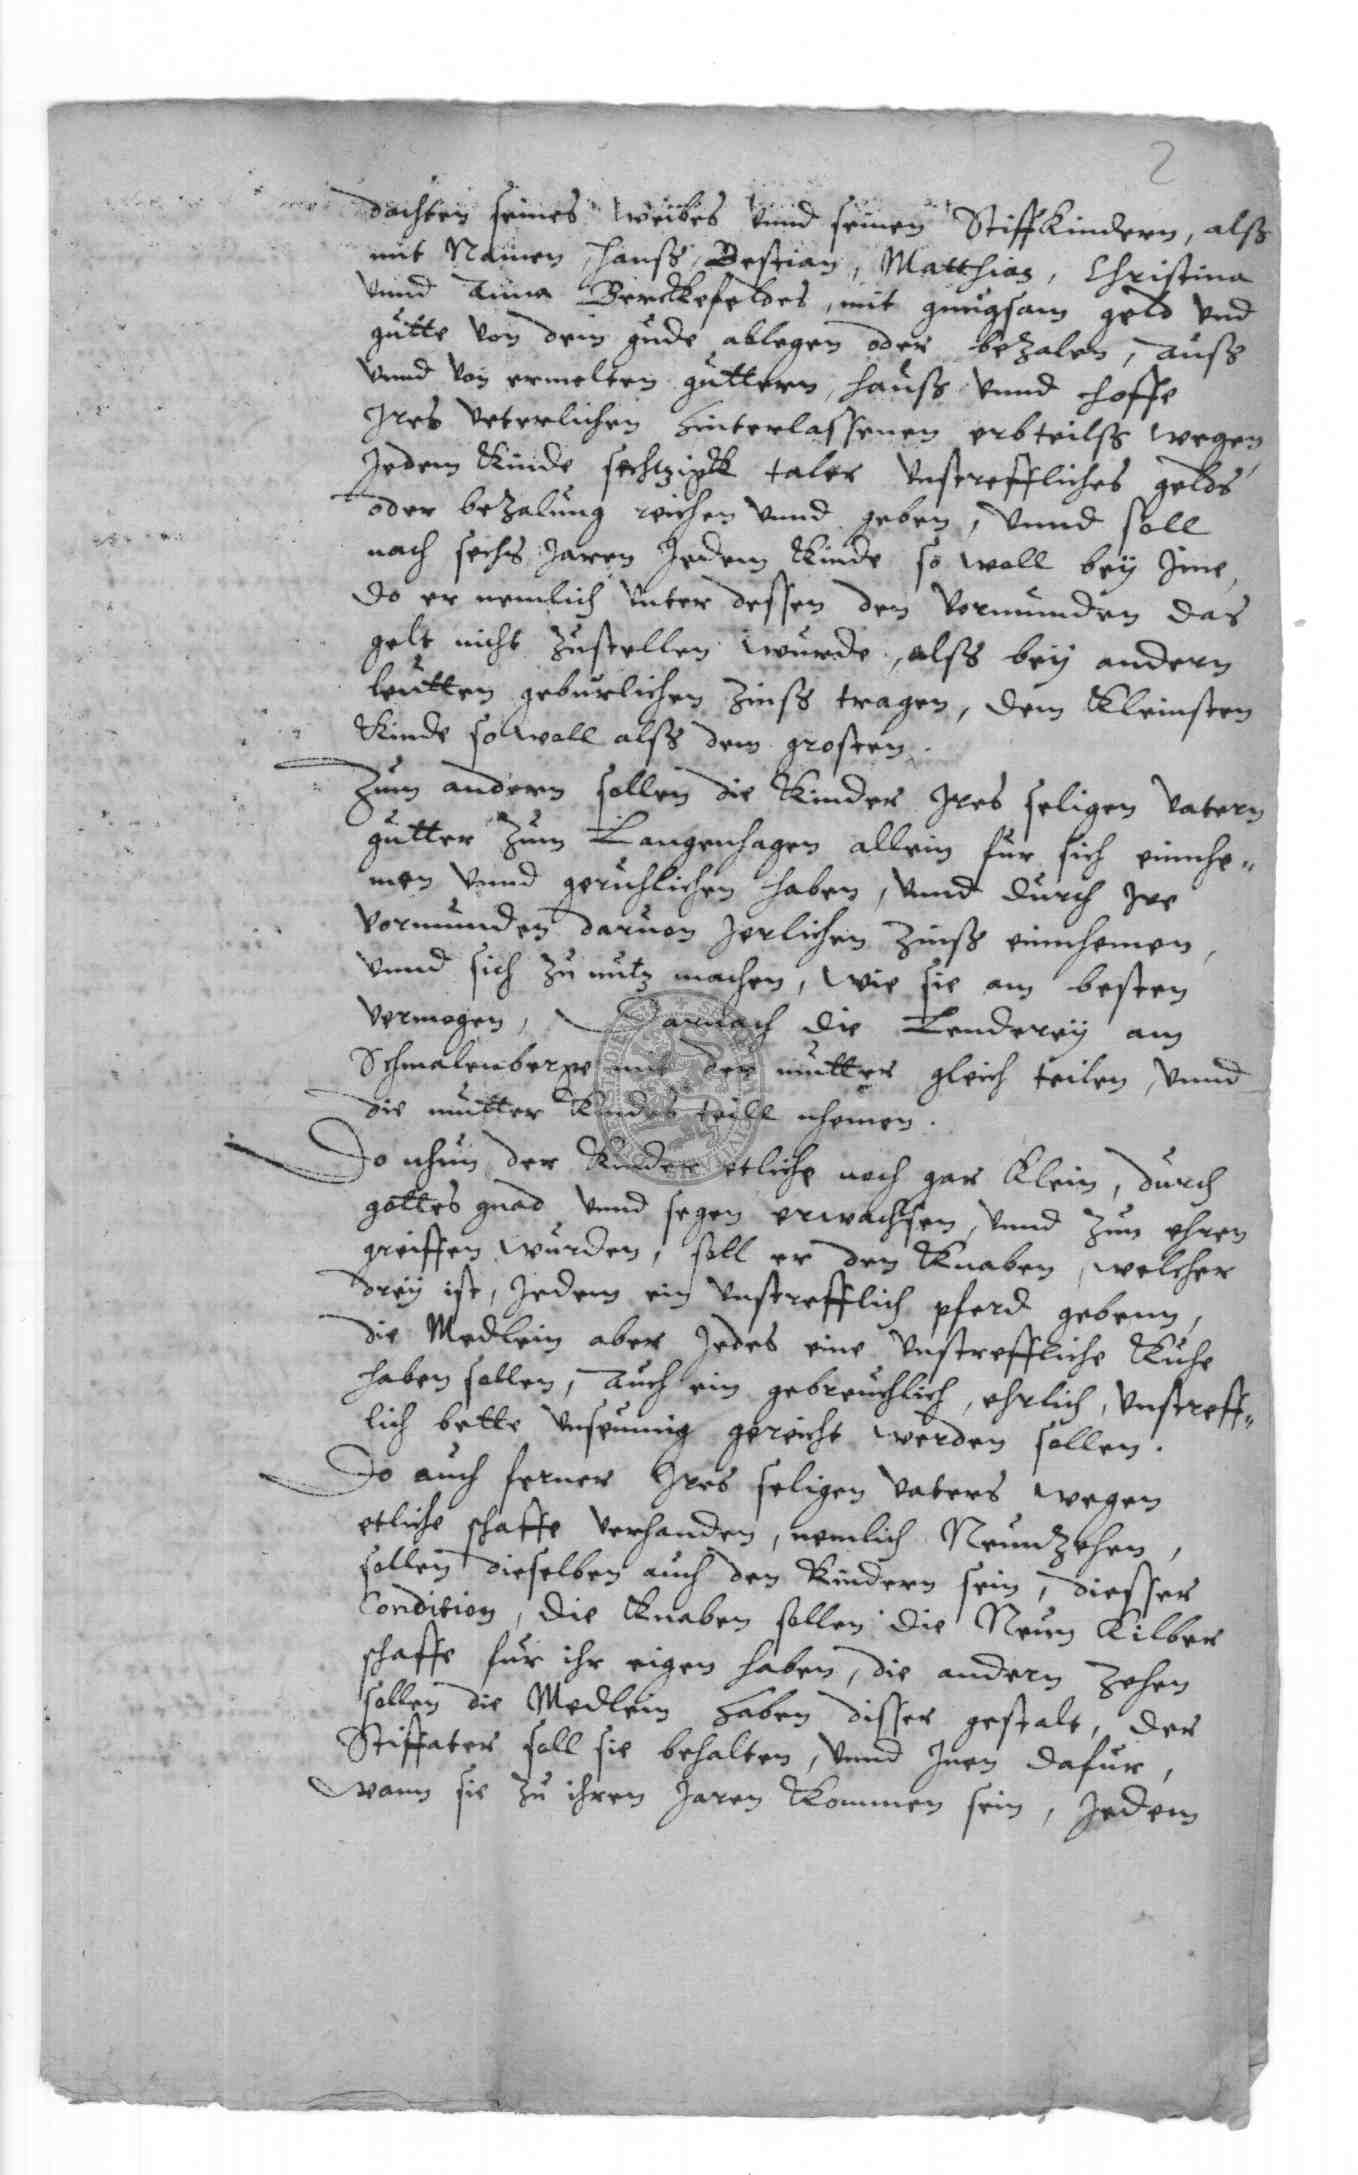 2
dachten seines weibes vnnd seinen Stiffkindern, alß
mit Namen, Hanß, Bestian, Matthias, Christina
vnnd Anna Berckefeldes, mit gnugsam geld vnd
gutte von dem gude ablegen oder bezalen, auß
vnnd von ermelten guttern, hauß vnnd hoffe
Ires veterlichen hinterlassenen erbteilß wegen
Jedem Kinde sechtzigk taler vnstreffliches gelds
oder bezalung reichen vnnd geben, vnnd soll
nach sechs Jaren Jedem Kinde so woll bey Ime,
do er nemlich vnter dessen den vormunden das
gelt nicht zustellen wurde, alß bey andern
leutten geburlichen zinß tragen, dem Kleinsten
Kinde so woll alß dem grosten.
Zum andern sollen die Kinder Ires seligen vatern
gutter zum Langenhagen allein fur sich einnhe„
men vnnd geruhlichen haben, vnnd durch Ire
vormunden daruon Jerlichen zinß einnhemen,
vnnd sich zu nutz machen, wie sie am besten
vermogen, Darnach die Lenderey am
Schmalenberge mit der mutter gleich teilen, vnnd
die mutter Kindes teill nhemen.
Do nhun der Kinder etliche noch gar Klein, durch
gottes gnad vnnd segen erwachsen, vnnd zun ehren
greiffen wurden, soll er den Knaben, welcher
drey ist, Jedem ein vnstrefflich pferd gebenn,
die Medlein aber Jedes eine vnstreffliche Kuhe
haben sollen, auch ein gebreuchlich, ehrlich, vnstreff„
lich bette vnseumig gereicht werden sollen.
Do auch ferner Ires seligen vaters wegen
etliche schaffe verhanden, nemlich Neunzehen,
sollen dieselben auch den Kindern sein, diesser
Condition, die Knaben sollen die Neun Kilber
schaffe fur ihr eigen haben, die andern zehen
sollen die Medlein haben disser gestalt, der
Stiffater soll sie behalten, vnnd Inen dafur,
wann sie zu ihren Jaren Kommen sein, Jedem